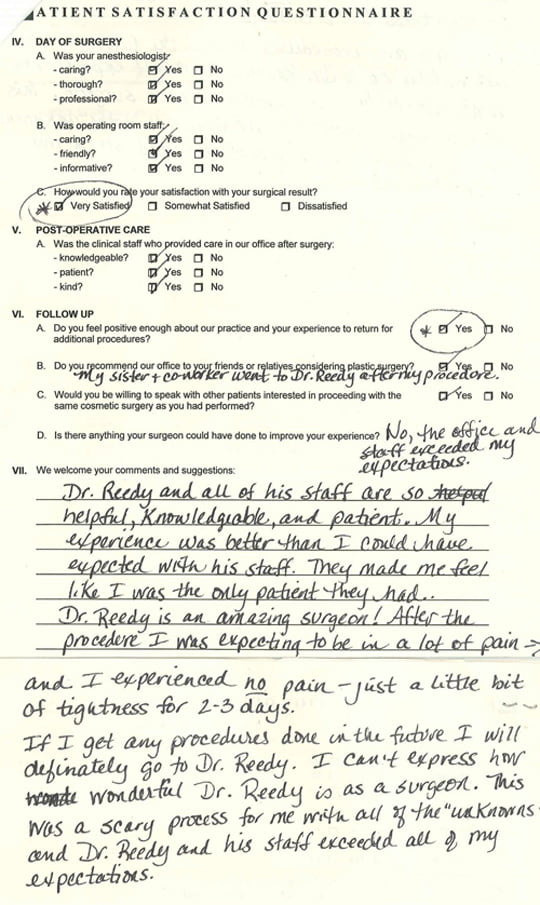 ATIENT SATISFACTION QUESTIONNAIRE
IV. DAY OF SURGERY
A. Was your anesthesiologist:
- caring? Yes No
- thorough? Yes No
- professional? Yes No
B. Was operating room staff:
- caring? Yes No
- friendly? Yes No
- informative? Yes No
C. How would you rate your satisfaction with your surgical result?
Very Satisfied Somewhat Satisfied Dissatisfied
V. POST-OPERATIVE CARE
A. Was the clinical staff who provided care in our office after surgery:
- knowledgeable? Yes No
- patient? Yes No
- kind? Yes No
VI. FOLLOW UP
A. Do you feel positive enough about our practice and your experience to return for Yes No
additional procedures?
B. Do you recommend our office to your friends or relatives considering plastic surgery? Yes No
My sister + coworker went to Dr. Reedy after my procedore.
C. Would you be willing to speak with other patients interested in proceeding with the Yes No
same cosmetic surgery as you had performed?
D. Is there anything your surgeon could have done to improve your experience? No, the office and
staff exceeded my
expectations.
VII. We welcome your comments and suggestions:
Dr. Reedy and all of his staff are so
helpful, Knowledgable, and patient. My
experience was better than I could have
expected with his staff. They made me feel
like I was the only patient they had..
Dr. Reedy is an amazing surgeon! After the
procedere I was expecting to be in a lot of pain →
and I experienced no pain - just a little bit
of tightness for 2-3 days.
If I get any procedures done in the future I will
definately go to Dr. Reedy. I can't express how
wonderful Dr. Reedy is as a surgeon. This
was a scary process for me with all of the "unknowns
and Dr. Reedy and his staff exceeded all of my
expectations.